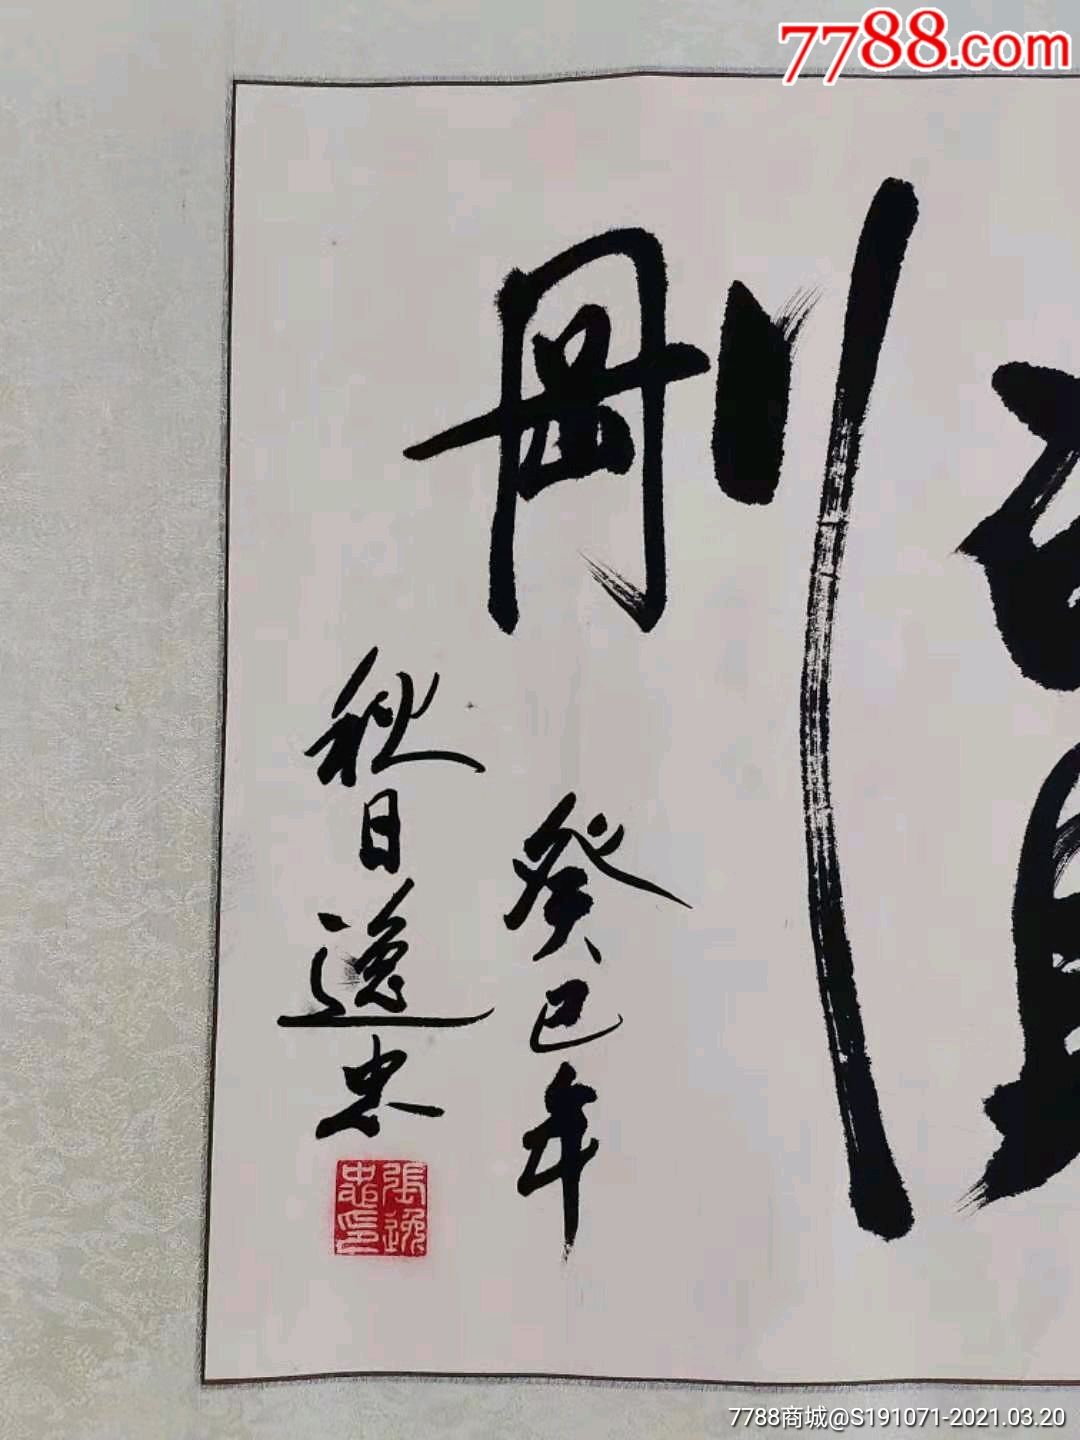 7788.com
剛
癸巳年
秋日逸忠
張逸忠印
7788商城@S191071-2021.03.20